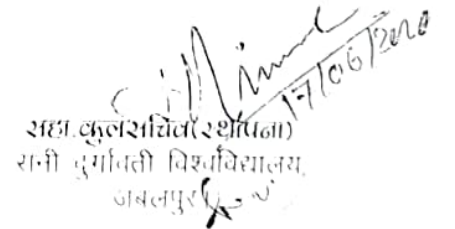 17/06/2020
सहा.कुलसचिव(स्थापना)
रानी दुर्गावती विश्वविद्यालय,
जबलपुर